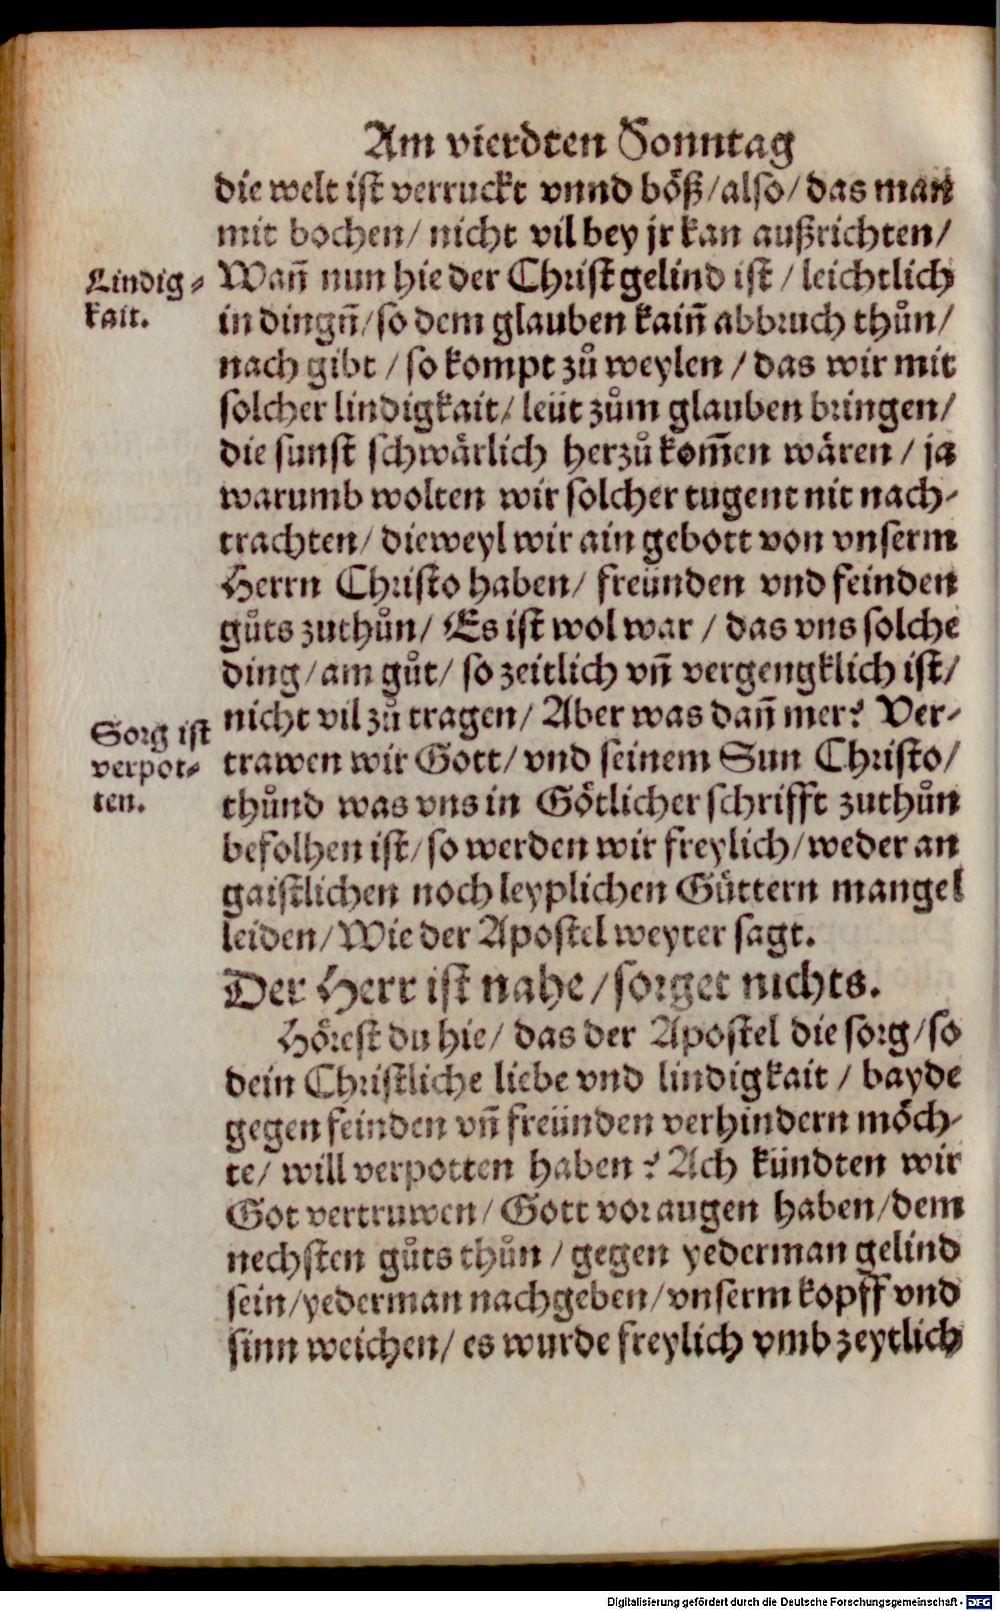 Am vierdten Sonntag
die welt ist verruckt vnnd böß/also/das man
mit bochen/ nicht vil bey jr kan außrichten/
Lindig-
kait.
Wañ nun hie der Christ gelind ist / leichtlich
in dingñ/so dem glauben kaiñ abbruch thůn/
nach gibt / so kompt zů weylen / das wir mit
solcher lindigkait/ leüt zům glauben bringen/
die sunst schwärlich herzů kom̃en wären / ja
warumb wolten wir solcher tugent nit nach-
trachten/ dieweyl wir ain gebott von vnserm
Herrn Christo haben/ freünden vnd feinden
gůts zuthůn/ Es ist wol war / das vns solche
ding/am gůt/ so zeitlich vñ vergengklich ist/
Sorg ist
verpot-
ten.
nicht vil zů tragen/ Aber was dañ mer? Ver-
trawen wir Gott/ vnd seinem Sun Christo/
thůnd was vns in Götlicher schrifft zuthůn
befolhen ist/so werden wir freylich/weder an
gaistlichen noch leyplichen Güttern mangel
leiden/Wie der Apostel weyter sagt.
Der Herr ist nahe/sorget nichts.
Hörest du hie/ das der Apostel die sorg/so
dein Christliche liebe vnd lindigkait / bayde
gegen feinden vñ freünden verhindern möch-
te/ will verpotten haben? Ach kündten wir
Got vertruwen/ Gott vor augen haben/dem
nechsten gůts thůn / gegen yederman gelind
sein/yederman nachgeben/vnserm kopff vnd
sinn weichen/ es wurde freylich vmb zeytlich
Digitalisierung gefördert durch die Deutsche Forschungsgemeinschaft - DFG